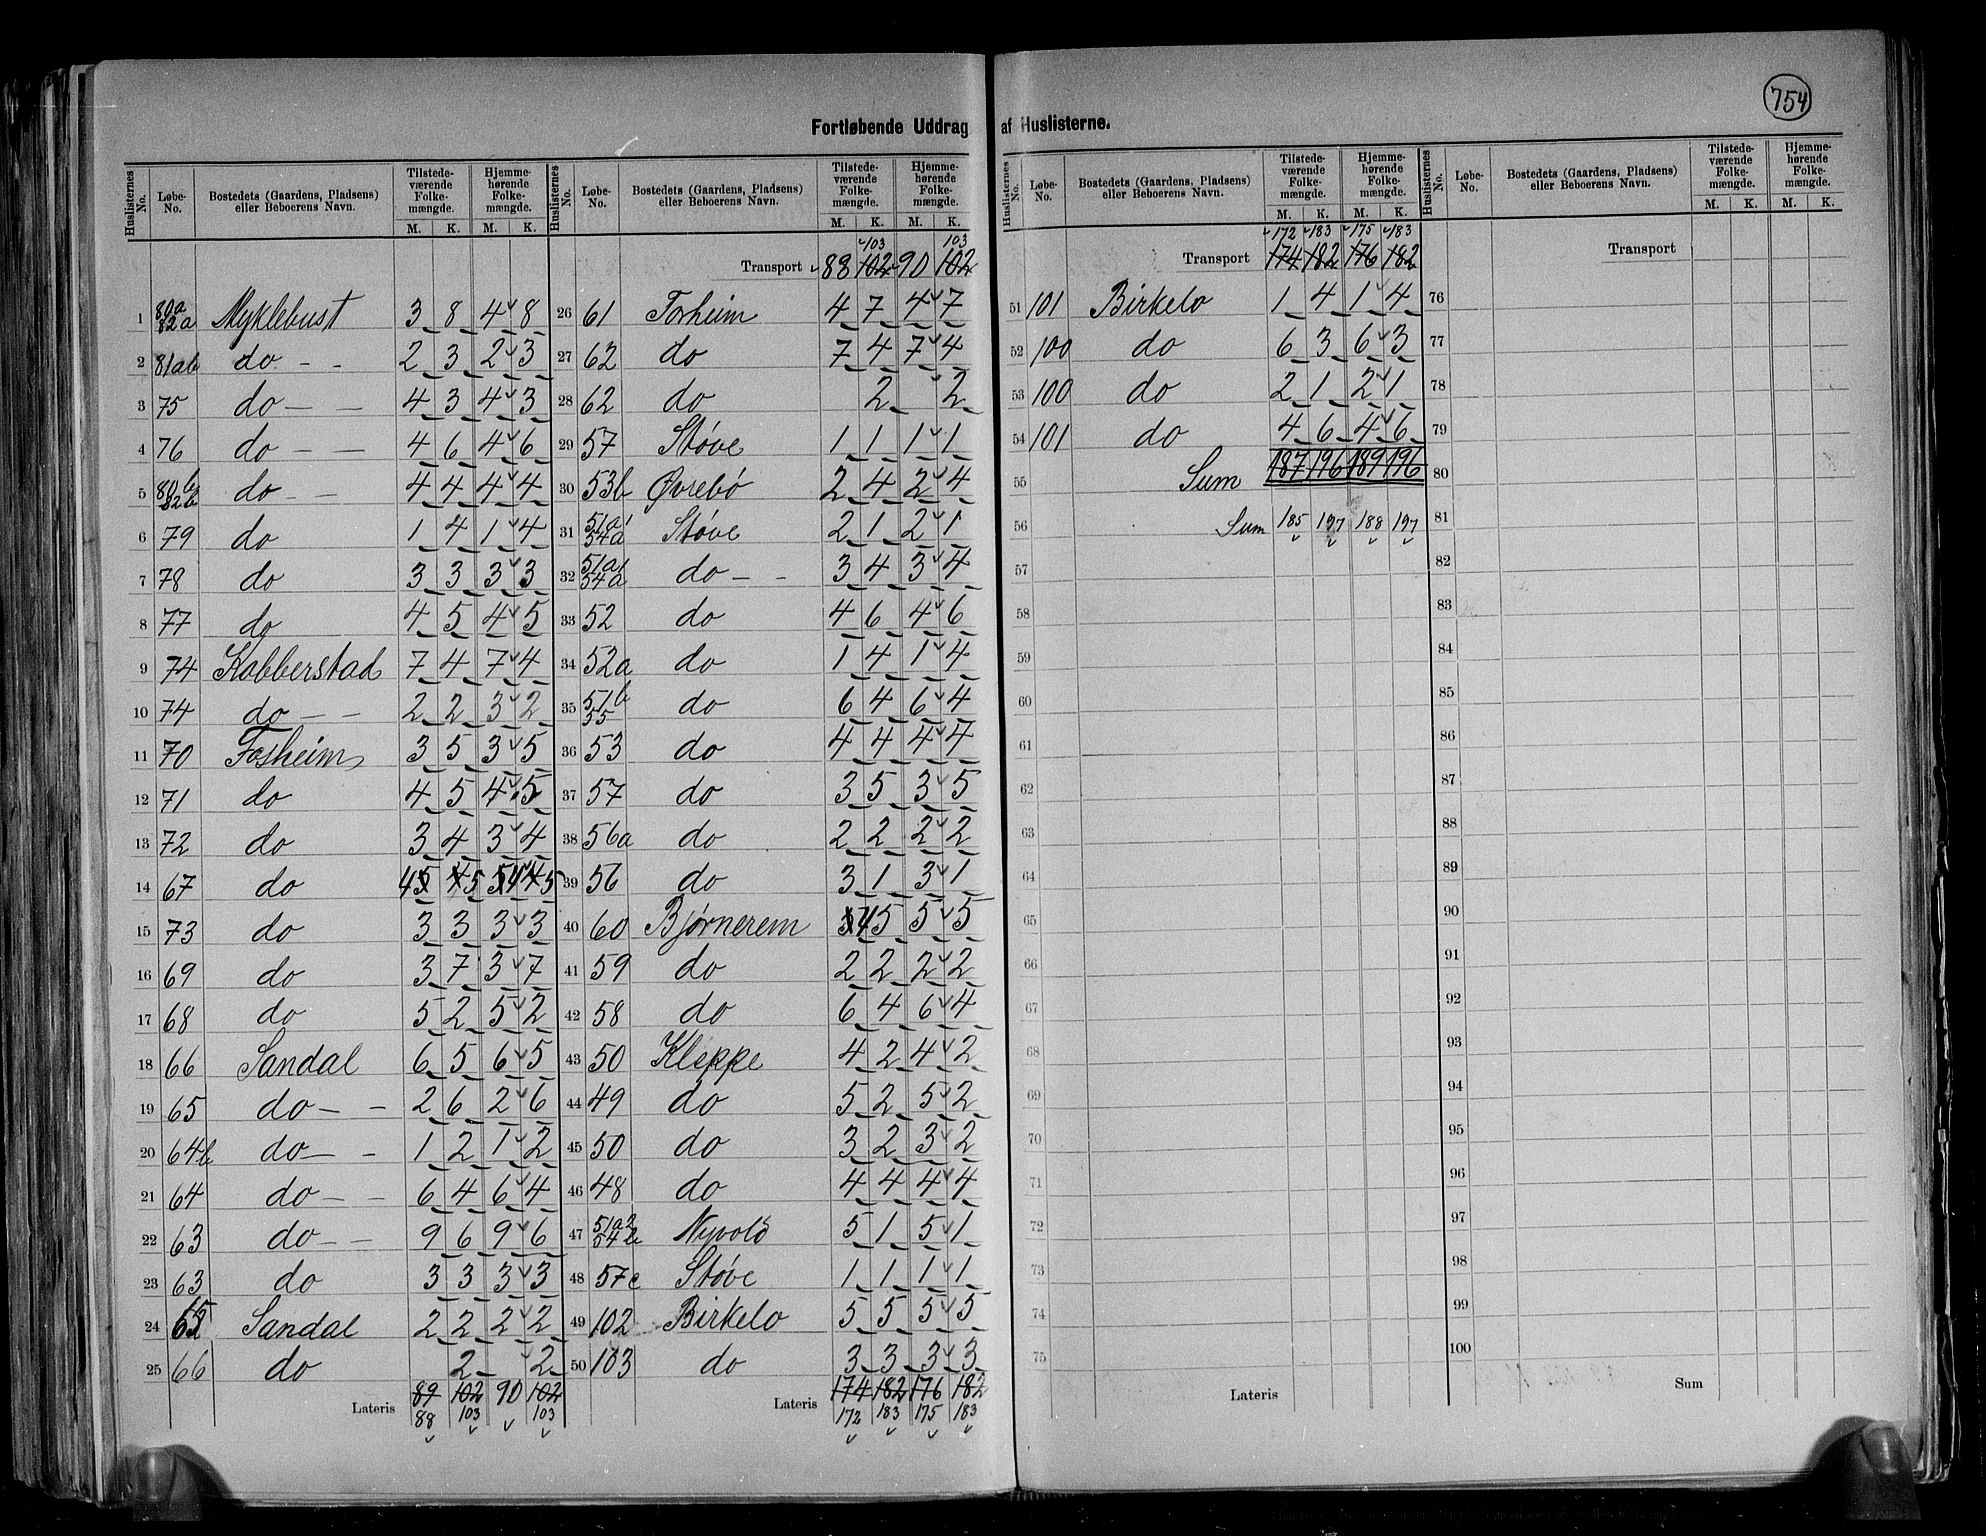 754
Fortløbende Uddrag af Huslisterne.
Huslisternes No. | Løbe-No. | Bostedets (Gaardens, Pladsens) eller Beboerens Navn. | Tilstedeværende Folkemængde. M. K. | Hjemmehørende Folkemængde. M. K.
1 80a 82a Myklebust 3 8 4 8
2 81ab do - - 2 3 2 3
3 75 do - - 4 3 4 3
4 76 do - - 4 6 4 6
5 80b 82b do - - 4 4 4 4
6 79 do 1 4 1 4
7 78 do 3 3 3 3
8 77 do 4 5 4 5
9 74 Kobberstad 7 4 7 4
10 74 do - - 2 2 3 2
11 70 Fosheim 3 5 3 5
12 71 do 4 5 4 5
13 72 do 3 4 3 4
14 67 do 4 5 4 5 5 4 4 5
15 73 do 3 3 3 3
16 69 do 3 7 3 7
17 68 do 5 2 5 2
18 66 Sandal 6 5 6 5
19 65 do - - 2 6 2 6
20 64b do - - 1 2 1 2
21 64 do - - 6 4 6 4
22 63 do - - 9 6 9 6
23 63 do 3 3 3 3
24 65 Sandal 2 2 2 2
25 66 do 2 2
Lateris 89 102 90 102
88 103 103
Huslisternes No. | Løbe-No. | Bostedets (Gaardens, Pladsens) eller Beboerens Navn. | Tilstedeværende Folkemængde. M. K. | Hjemmehørende Folkemængde. M. K.
103 103
Transport 88 102 90 102
26 61 Forheim 4 7 4 7
27 62 do 7 4 7 4
28 62 do 2 2
29 57 Støve 1 1 1 1
30 53b Øvrebø 2 4 2 4
31 51a1 54a Støve 2 1 2 1
32 51a1 54a do - - 3 4 3 4
33 52 do 4 6 4 6
34 52a do 1 4 1 4
35 51b 55 do 6 4 6 4
36 53 do 4 4 4 4
37 57 do 3 5 3 5
38 56a do 2 2 2 2
39 56 do 3 1 3 1
40 60 Bjørnerem 4 5 5 5
41 59 do 2 2 2 2
42 58 do 6 4 6 4
43 50 Kleppe 4 2 4 2
44 49 do 5 2 5 2
45 50 do 3 2 3 2
46 48 do 4 4 4 4
47 51a2 54b Nyvold 5 1 5 1
48 57c Støve 1 1 1 1
49 102 Birkelo 5 5 5 5
50 103 do 3 3 3 3
Lateris 174 182 176 182
172 183 175 183
Huslisternes No. | Løbe-No. | Bostedets (Gaardens, Pladsens) eller Beboerens Navn. | Tilstedeværende Folkemængde. M. K. | Hjemmehørende Folkemængde. M. K.
172 183 175 183
Transport 174 182 176 182
51 101 Birkelo 1 4 1 4
52 100 do 6 3 6 3
53 100 do 2 1 2 1
54 101 do 4 6 4 6
55 Sum 187 196 189 196
56 Sum 185 197 188 197
57
58
59
60
61
62
63
64
65
66
67
68
69
70
71
72
73
74
75
Lateris
Huslisternes No. | Løbe-No. | Bostedets (Gaardens, Pladsens) eller Beboerens Navn. | Tilstedeværende Folkemængde. M. K. | Hjemmehørende Folkemængde. M. K.
Transport
76
77
78
79
80
81
82
83
84
85
86
87
88
89
90
91
92
93
94
95
96
97
98
99
100
Sum